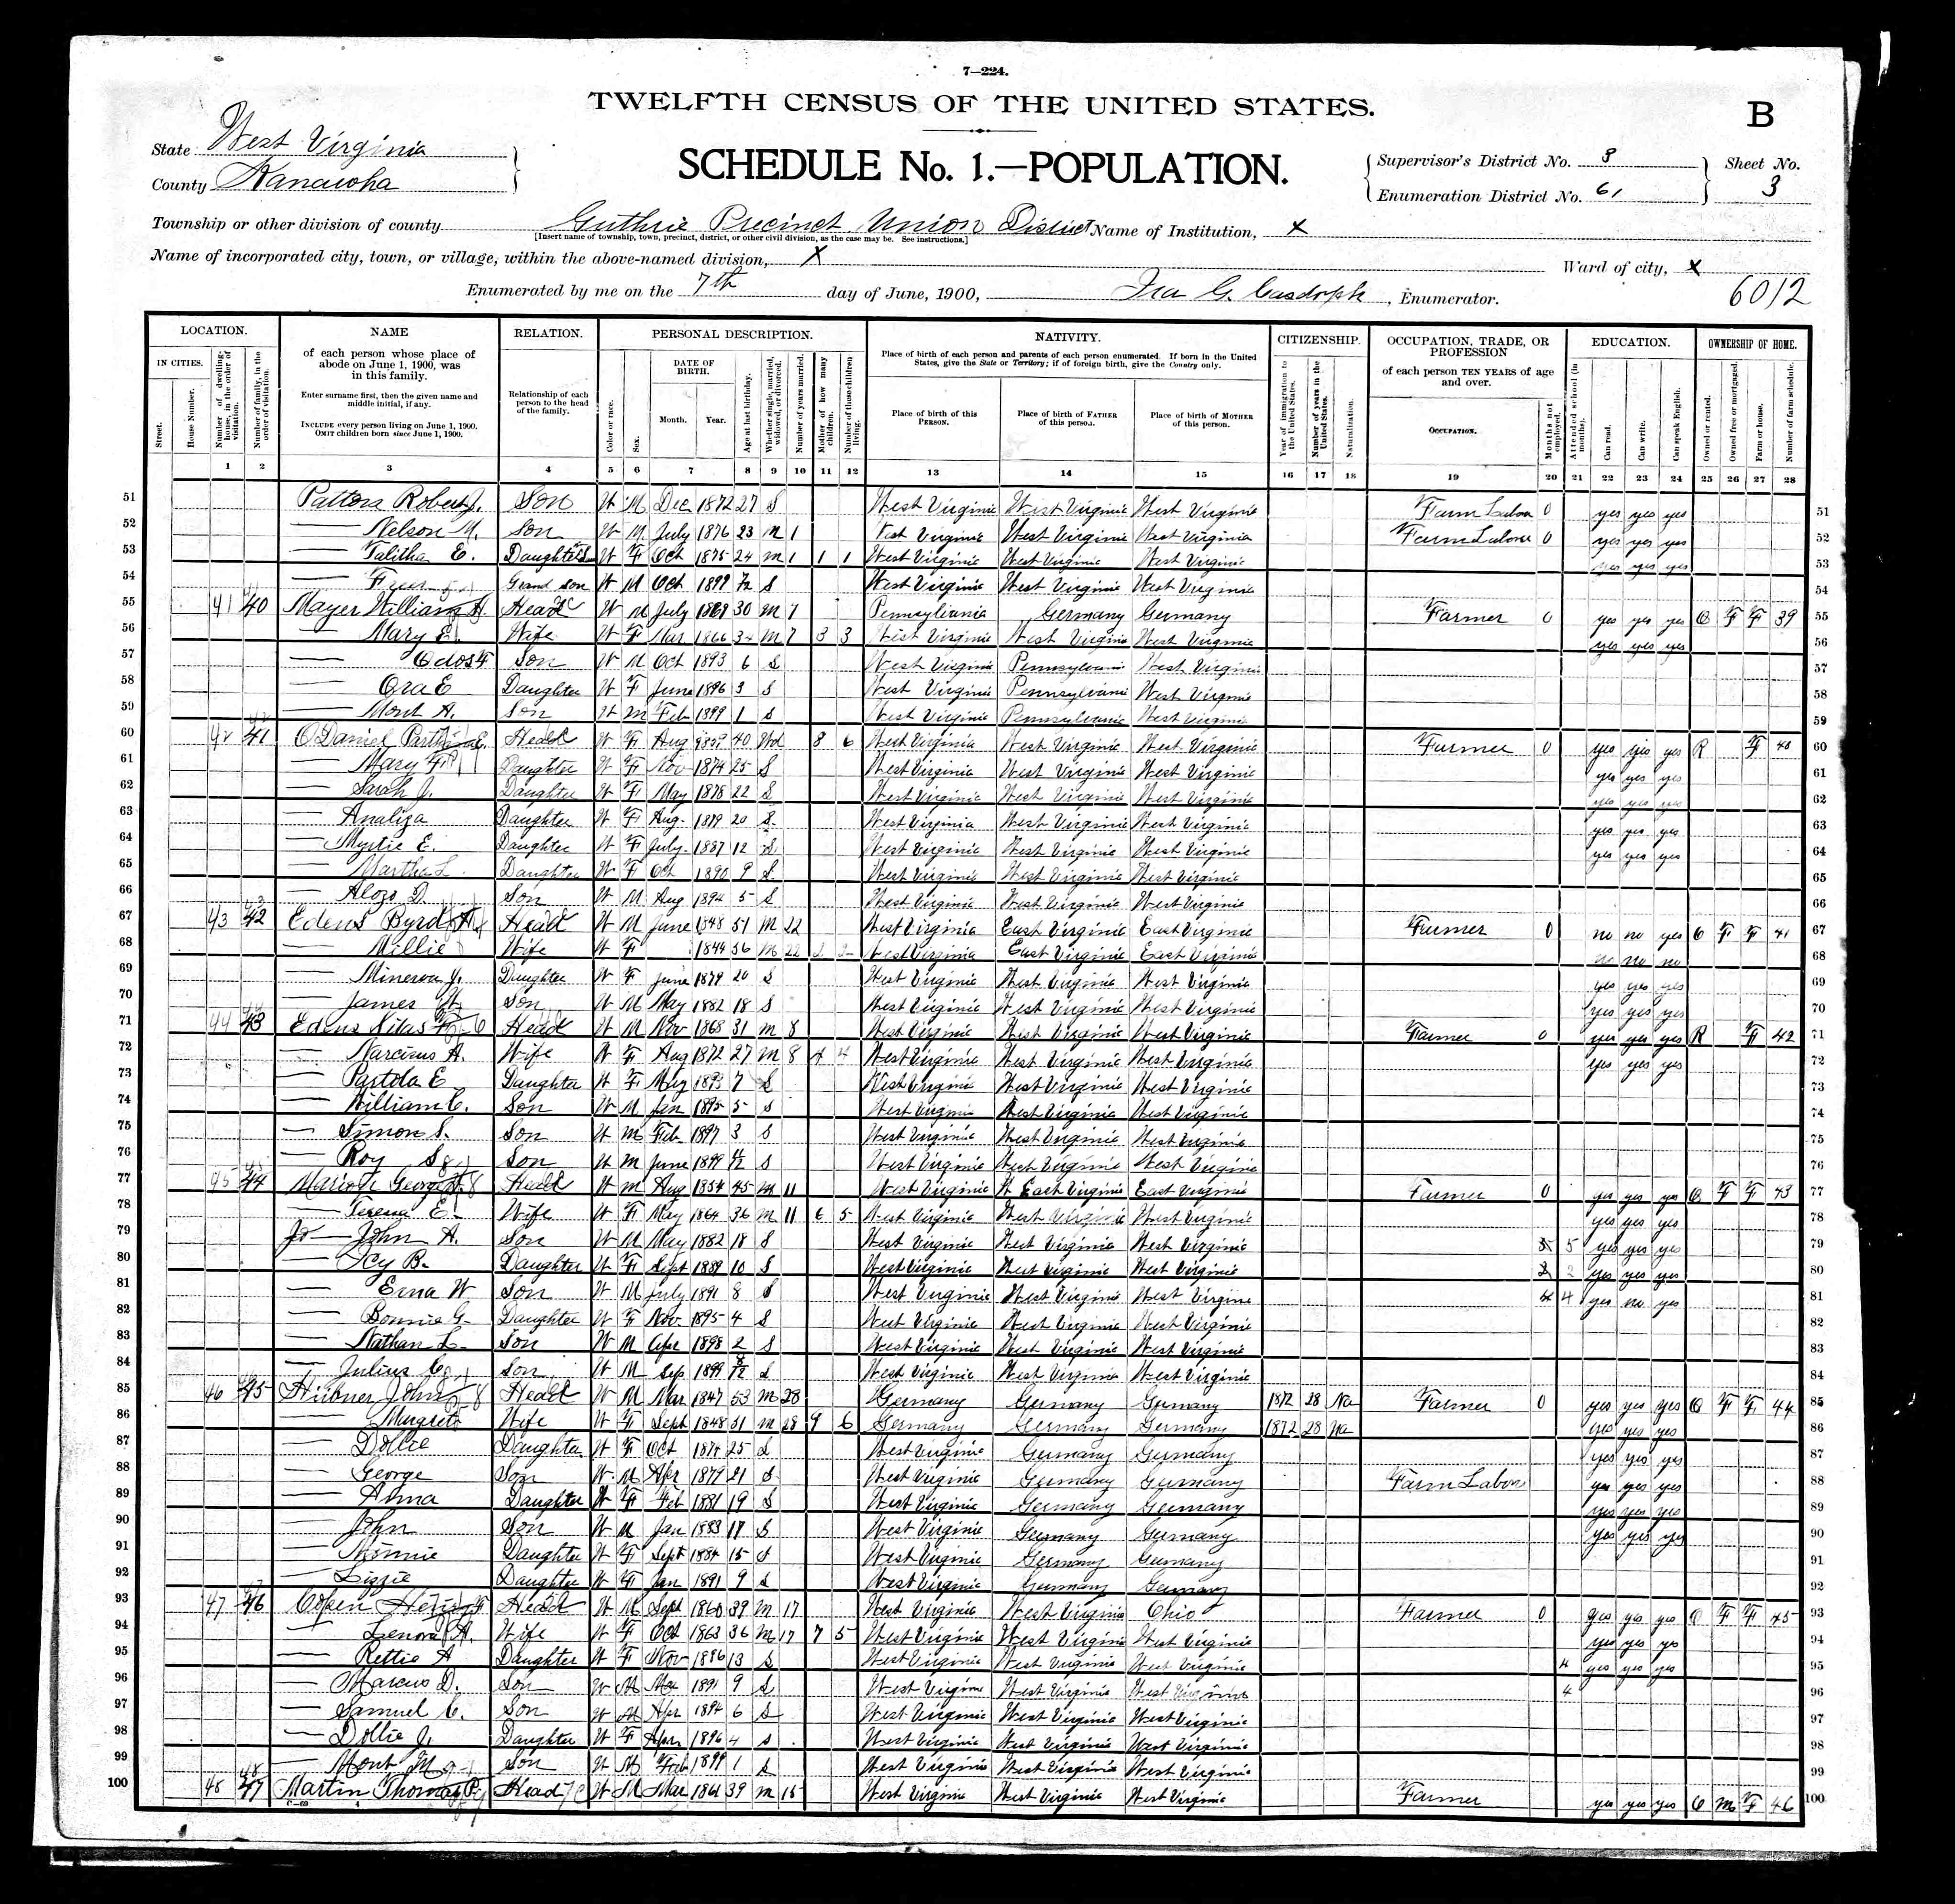 7—224.
TWELFTH CENSUS OF THE UNITED STATES.
B
State West Virginia
County Kanawha
SCHEDULE No. 1.—POPULATION.
Supervisor's District No. 3
Enumeration District No. 61
Sheet No. 3
Township or other division of county Guthrie Precinct Union District Name of Institution, X
[Insert name of township, town, precinct, district, or other civil division, as the case may be. See instructions.]
Name of incorporated city, town, or village, within the above-named division, X Ward of city, X
Enumerated by me on the 7th day of June, 1900, Ira G. Casdorph, Enumerator. 6012
LOCATION. NAME RELATION. PERSONAL DESCRIPTION. NATIVITY. CITIZENSHIP. OCCUPATION, TRADE, OR PROFESSION EDUCATION. OWNERSHIP OF HOME.
IN CITIES. Street. House Number. Number of dwelling-house, in the order of visitation. Number of family, in the order of visitation.
of each person whose place of abode on June 1, 1900, was in this family.
Enter surname first, then the given name and middle initial, if any.
INCLUDE every person living on June 1, 1900.
OMIT children born since June 1, 1900.
Relationship of each person to the head of the family.
Color or race. Sex. DATE OF BIRTH. Month. Year. Age at last birthday. Whether single, married, widowed, or divorced. Number of years married. Mother of how many children. Number of these children living.
Place of birth of each person and parents of each person enumerated. If born in the United States, give the State or Territory; if of foreign birth, give the Country only.
Place of birth of this PERSON. Place of birth of FATHER of this person. Place of birth of MOTHER of this person.
Year of immigration to the United States. Number of years in the United States. Naturalization.
of each person TEN YEARS of age and over.
OCCUPATION. Months not employed.
Attended school (in months). Can read. Can write. Can speak English.
Owned or rented. Owned free or mortgaged. Farm or house. Number of farm schedule.
1 2 3 4 5 6 7 8 9 10 11 12 13 14 15 16 17 18 19 20 21 22 23 24 25 26 27 28
51 Patton Robert J. Son W M Dec 1872 27 S West Virginia West Virginia West Virginia Farm Labor 0 yes yes yes 51
52 — Nelson M. Son W M July 1876 23 M 1 West Virginia West Virginia West Virginia Farm Labor 0 yes yes yes 52
53 — Talitha E. Daughter W F Oct 1875 24 M 1 1 1 West Virginia West Virginia West Virginia yes yes yes 53
54 — Grand son W M Oct 1899 S West Virginia West Virginia West Virginia 54
55 41 40 Mayer William Head W M July 1869 30 M 7 Pennsylvania Germany Germany Farmer 0 yes yes yes O F F 39 55
56 — Mary E. Wife W F Mar 1866 34 M 7 3 3 West Virginia West Virginia West Virginia yes yes yes 56
57 — Son W M Oct 1893 6 S West Virginia Pennsylvania West Virginia 57
58 — Ora E Daughter W F June 1896 3 S West Virginia Pennsylvania West Virginia 58
59 — Mont A. Son W M Feb 1899 1 S West Virginia Pennsylvania West Virginia 59
60 42 41 O Daniel Head W F Aug 1859 40 Wd 8 6 West Virginia West Virginia West Virginia Farmer 0 yes yes yes R F 40 60
61 — Mary F Daughter W F Nov 1874 25 S West Virginia West Virginia West Virginia yes yes yes 61
62 — Sarah J. Daughter W F May 1878 22 S West Virginia West Virginia West Virginia yes yes yes 62
63 — Analiza Daughter W F Aug. 1879 20 S West Virginia West Virginia West Virginia yes yes yes 63
64 — Myrtie E. Daughter W F July 1887 12 S West Virginia West Virginia West Virginia yes yes yes 64
65 — Martha L. Daughter W F Oct 1890 9 S West Virginia West Virginia West Virginia 65
66 — Alozo D. Son W M Aug 1894 5 S West Virginia West Virginia West Virginia 66
67 43 42 Edens Byrd Head W M June 1848 51 M 22 West Virginia East Virginia East Virginia Farmer 0 no no yes O F F 41 67
68 — Millie Wife W F 1844 56 M 22 2 2 West Virginia East Virginia East Virginia no no no 68
69 — Minerva J. Daughter W F June 1879 20 S West Virginia West Virginia West Virginia yes yes yes 69
70 — James W. Son W M May 1882 18 S West Virginia West Virginia West Virginia yes yes yes 70
71 44 43 Edens Silas Head W M Nov 1868 31 M 8 West Virginia West Virginia West Virginia Farmer 0 yes yes yes R F 42 71
72 — Narcissus A. Wife W F Aug 1872 27 M 8 4 4 West Virginia West Virginia West Virginia yes yes yes 72
73 — Partola E Daughter W F May 1893 7 S West Virginia West Virginia West Virginia 73
74 — William C. Son W M Jan 1895 5 S West Virginia West Virginia West Virginia 74
75 — Simon S. Son W M Feb 1897 3 S West Virginia West Virginia West Virginia 75
76 — Roy S Son W M June 1899 S West Virginia West Virginia West Virginia 76
77 45 44 George Head W M Aug 1854 45 M 11 West Virginia East Virginia East Virginia Farmer 0 yes yes yes O F F 43 77
78 — Teresa E. Wife W F May 1864 36 M 11 6 5 West Virginia West Virginia West Virginia yes yes yes 78
79 — John A. Son W M May 1882 18 S West Virginia West Virginia West Virginia 5 yes yes yes 79
80 — Icy B. Daughter W F Sept 1889 10 S West Virginia West Virginia West Virginia 2 yes yes yes 80
81 — Erna W Son W M July 1891 8 S West Virginia West Virginia West Virginia 4 yes no yes 81
82 — Bonnie G. Daughter W F Nov 1895 4 S West Virginia West Virginia West Virginia 82
83 — Nathan L. Son W M Apr 1898 2 S West Virginia West Virginia West Virginia 83
84 — Julius C. Son W M Sep 1899 S West Virginia West Virginia West Virginia 84
85 46 45 Hubner John Head W M Mar 1847 53 M 28 Germany Germany Germany 1872 28 Na Farmer 0 yes yes yes O F F 44 85
86 — Wife W F Sept 1848 51 M 28 9 6 Germany Germany Germany 1872 28 Na yes yes yes 86
87 — Dollie Daughter W F Oct 1874 25 S West Virginia Germany Germany yes yes yes 87
88 — George Son W M Apr 1879 21 S West Virginia Germany Germany Farm Labor yes yes yes 88
89 — Anna Daughter W F Feb 1881 19 S West Virginia Germany Germany yes yes yes 89
90 — John Son W M Jan 1883 17 S West Virginia Germany Germany yes yes yes 90
91 — Minnie Daughter W F Sept 1884 15 S West Virginia Germany Germany 91
92 — Lizzie Daughter W F Jan 1891 9 S West Virginia Germany Germany 92
93 47 46 Copen Head W M Sept 1860 39 M 17 West Virginia West Virginia Ohio Farmer 0 yes yes yes O F F 45 93
94 — Lenora A. Wife W F Oct 1863 36 M 17 7 5 West Virginia West Virginia West Virginia yes yes yes 94
95 — Rettie A Daughter W F Nov 1886 13 S West Virginia West Virginia West Virginia 4 yes yes yes 95
96 — Marcus D. Son W M Mar 1891 9 S West Virginia West Virginia West Virginia 4 96
97 — Samuel C. Son W M Apr 1894 6 S West Virginia West Virginia West Virginia 97
98 — Dollie J. Daughter W F Apr 1896 4 S West Virginia West Virginia West Virginia 98
99 — Mont M Son W M Feb 1899 1 S West Virginia West Virginia West Virginia 99
100 48 47 Martin Thomas Head W M Mar 1861 39 M 15 West Virginia West Virginia West Virginia Farmer yes yes yes O M F 46 100